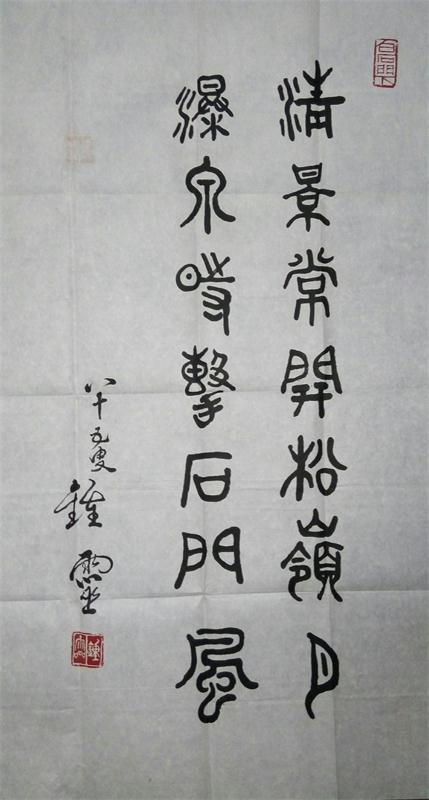 清景常開松嶺月
瀑泉時擊石門風
八十五叟
鍾靈